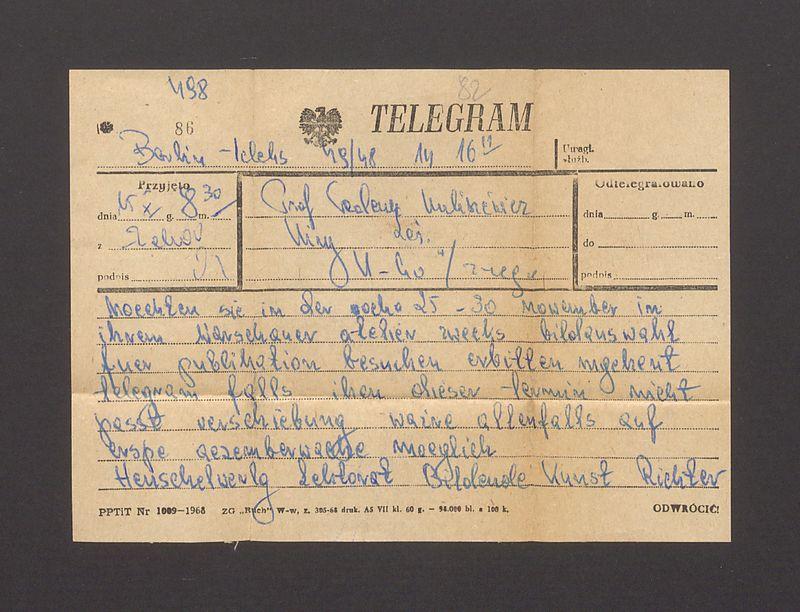 498
82
86
TELEGRAM
Berlin - 49/48 14 16 11
Uwagi
służb.
Przyjęto
Odtelegrafowano
dnia 15 XI g. 8 m. 30
z
podpis
Prof
dnia g. m.
do
podpis
Moechten sie in der woche 25 - 30 november in
ihrem Warschauer atelier zwecks bildauswahl
fuer publikation besuchen erbitten umgehent
telegram falls ihen dieser termin nicht
passt verschiebung waire allenfalls auf
erspe dezemberwache moeglich
Henschelverlg Lektorat Bildende Kunst Richter
PPTiT Nr 1009-1968 ZG „Ruch" W-w, z. 305-68 druk. A5 VII kl. 60 g. - 94.000 bl. a 100 k.
ODWRÓCIĆ!